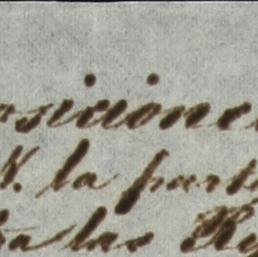 osicione
N. la part
ta las Re